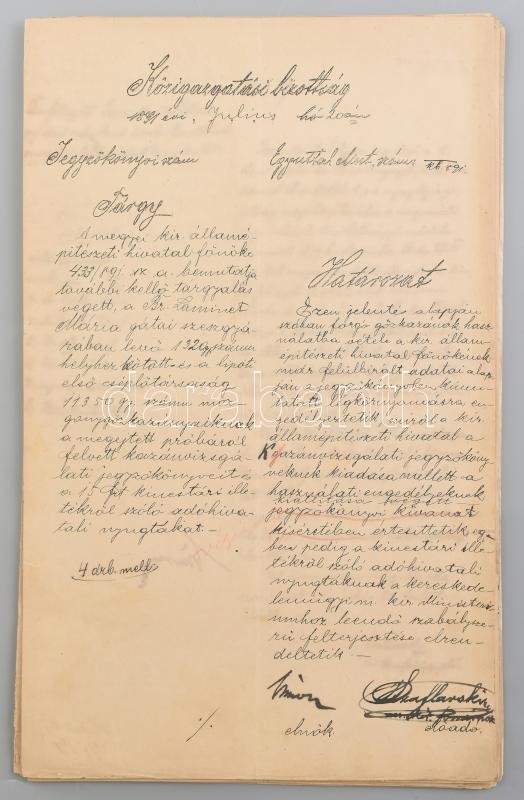 Közigazgatási bizottság
1891 évi, Julius hó 20án
Jegyzőkönyvi szám
Együttal Ikt. szám
Tárgy
A megyei kir. állame-
pitészeti hivatal főnöke
433/891 sz a. bemutatja
további kellő tárgyalás
végett, a Br. Laminet
Mária gátai szeszgyá-
rában levő 1320 gy számu
helyhez kötött és a lipót
első cséplőtársaság
11950 gy. számu moz-
gonygőzkazánjaiknak
a megejtett próbáról
felvett kazánvizsgá-
lati jegyzőkönyveit és
a 15 frt kincstári ille-
tékről szóló adóhiva-
tali nyugtákat. –
4 drb. mell.
Határozat
Ezen jelentés alapján
szóban forgó gőzkazánok hasz-
nálatba vétele a kir. állam-
építészeti hivatal főnökének
már felülbirált adatai alap-
ján a jegyzőkönyvben kimu-
tatott légkörnyomásra en-
gedélyeztetik miről a kir.
államépitészeti hivatal a
kazánvizsgálati jegyzőköny-
veknek kiadása mellett a
használati engedélyeknek
jegyzőkönyvi kivonat
kiséretében értesíttetik, eg-
ben pedig a kincstári ille-
tékről szóló adóhivatali
nyugtáknak a kereskede-
lemügyi m. kir. Ministeri-
umhoz leendő szabálysze-
rű felterjesztése elren-
deltetik. –
elnök.
előadó.
./.
darabanth